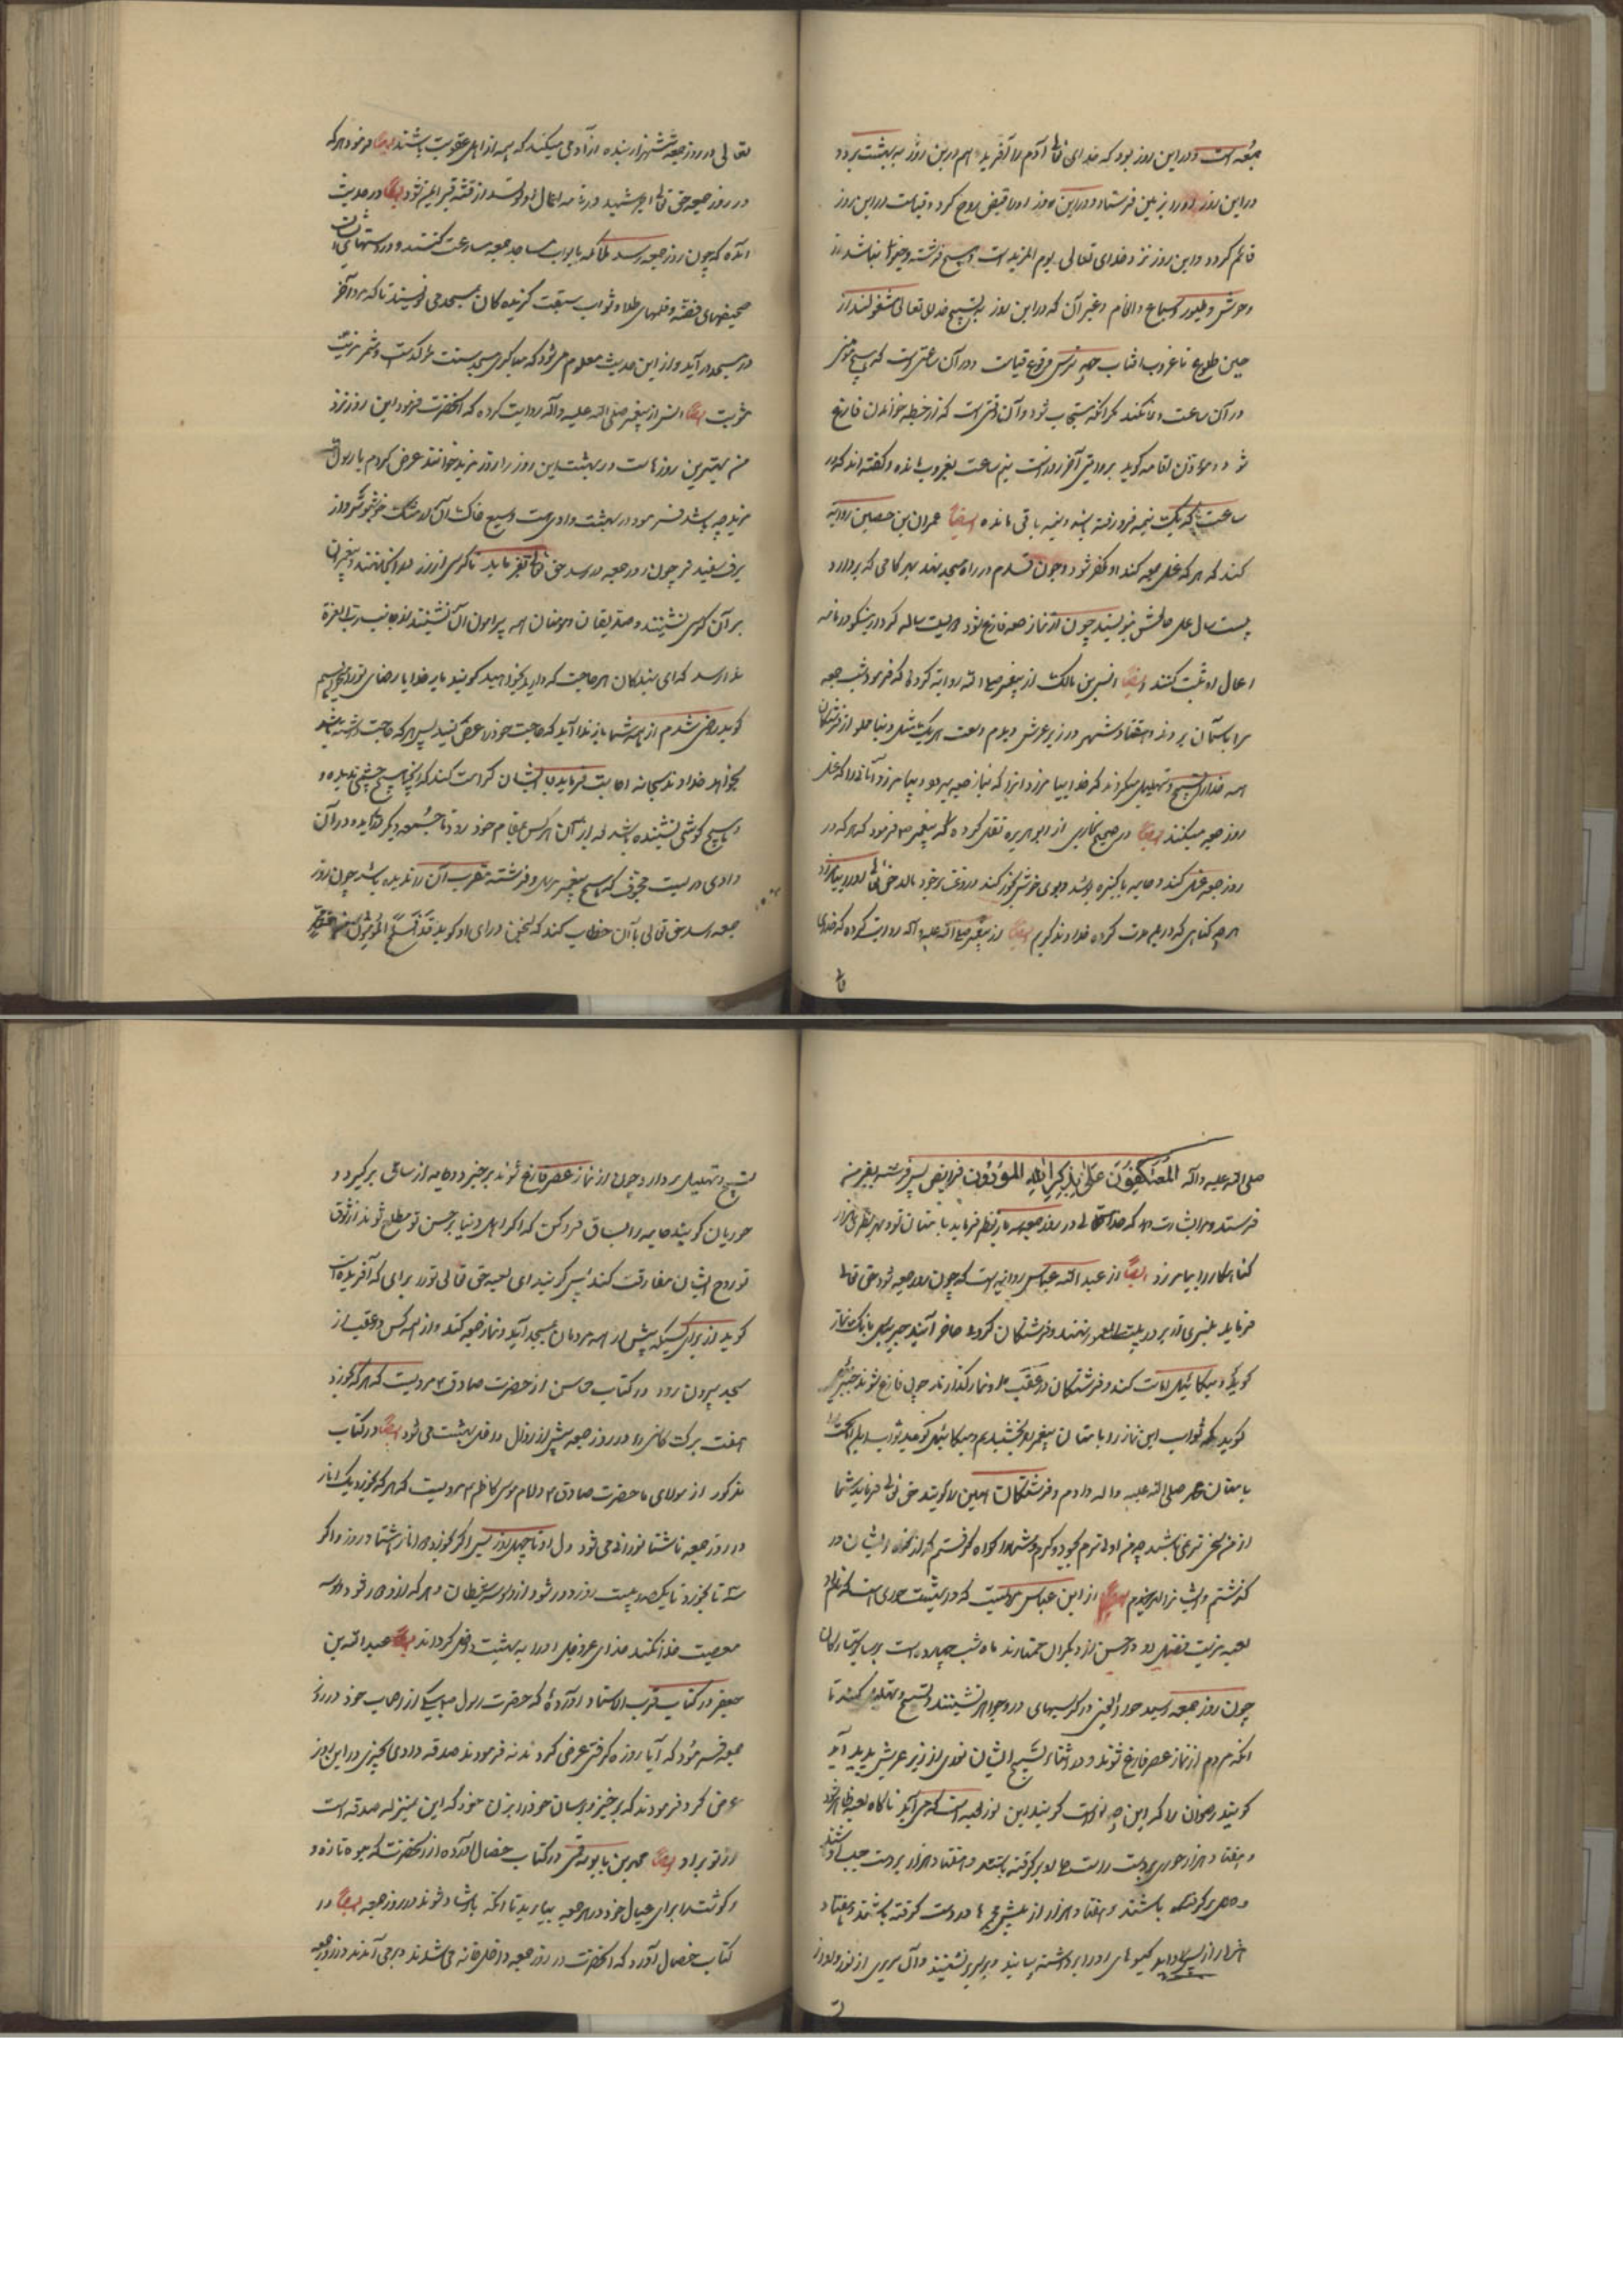 جمعه است و در این روز بود که خدای تعالی آدم را آفرید و هم درین روز به بهشت برد و
در این روز او را بزمین فرستاد و در این روز او را قبض روح کرد و قیامت در این روز
قائم گردد و این روز نزد خدای تعالی یوم المزید است و هیچ فرشته و چیزی نباشد از
وحوش و طیور و سباع و انعام و غیر آن که در این روز به تسبیح خدای تعالی مشغولند از
حین طلوع تا غروب افتاب چه ترس وقوع قیامت و در آن ساعتی است که هیچ مؤمنی
در آن ساعت دعا نکند مگر انکه مستجاب شود و آن وقتی است که از خطبه خواندن فارغ
شود و مؤذن اقامه گوید بروایتی آخر روز است نیم ساعت بغروب مانده و گفته اند که در
ساعت که یک نیمه فرو رفته باشد و نیمه باقی مانده ایضاً عمران بن حصین روایة
کند که هر که غسل جمعه کند او مغفر شود و چون قدم در راه مسجد نهد بهر گامی که بردارد
بیست سال عمل صالحش بنویسند چون از نماز جمعه فارغ شود دویست ساله کردار نیکو در نامه
اعمال او ثبت کنند ایضاً انس بن مالک از پیغمبر صلی الله روایة کرده که فرمود شب جمعه
مرا باسمان بردند و هفتاد شهر در زیر عرش دیدم وسعت هر یک مثل دنیا مملو از فرشتگان
همه خدا را تسبیح و تهلیل میکردند که خدایا بیامرز انرا که نماز جمعه میرود و بیامرز آنان را که غسل
روز جمعه میکنند ایضاً در صحیح بخاری از ابو هریره نقل کرده که پیغمبر ص فرمود که هر که در
روز جمعه غسل کند و جامه پاکیزه پوشد و بوی خوش بخور کند و روغن بر خود مالد حق تعالی او را بیامرزد
هر چه گناهی که در ان مدت کرده خداوند کریم ایضاً از پیغمبر صلی الله علیه و آله روایت کرده که خدای
تعا
تعالی در روز جمعه ششهزار بنده ازاد می میکند که همه از اهل عقوبت باشند ایضاً فرمود هر که
در روز جمعه حق تعالی اجر شهید در نامه اعمال او نویسد و از فتنه قبر ایمن شود ایضاً در حدیث
آمده که چون روز جمعه رسد ملائکه بابواب مساجد جمعه سارعت کنند و در دستهای ایشان
صحیفهای فضه و قلمهای طلا و ثواب سبقت گزیده کان مسجد می نویسند تا که مرد آخر
در مسجد در آید و از این حدیث معلوم می شود که مباکری مسجد سنت مؤکدست و مثمر مزیت
مثوبت ایضاً انس از پیغمبر صلی الله علیه و آله روایت کرده که انحضرت فرمود این روز نزد
من بهترین روزهاست و در بهشت این روز را روز مزید خوانند عرض کردم یا رسول الله
مزید چه باشد فرمود در بهشت وادی است وسیع خاکش از مشک خوشبوتر و از
برف سفید تر چون روز جمعه در رسد حق تعالی بفرماید تا کرسی از زر در انجا نهند و پیغمبران
بر آن کرسی نشینند و صدیقان و مؤمنان همه پیرامون آن نشینند از جانب رب العزة
ندا رسد که ای بندگان هر حاجت که دارید بخواهید گویند بار خدایا رضای تو را میخواهیم
گوید راضی شدم از همه شما باز ندا آید که حاجت خود را عرض کنید پس هر که حاجت داشته باشد
بخواهد خداوند سبحانه اجابت فرماید و بایشان کرامت کند که انچنان هیچ چشمی ندیده و
هیچ گوشی نشنیده باشد بعد از آن هر کس بمقام خود رود تا جمعه دیگر در آید و در آن
وادی دریست مجوف که هیچ پیغمبر مرسل و فرشته مقرب آن را ندیده باشد چون روز
جمعه رسد حق تعالی بآن خطاب کند که سخن در ای او گوید قد افلح المؤمنون
صلی الله علیه و آله المعتکفون علی ذکر الله المؤدون فرایض پس فرشته بفرمن
فرستد و مرا بشارت دهد که خدایتعالی در روز جمعه باز نظم فرماید با متان تو و بهر نظری هزار
گناهکار را بیامرزد ایضاً از عبد الله عباس روایت است که چون روز جمعه شود حق تعالی
فرماید منبری از بر در بیت المعمور نهند و فرشتگان گرد حاضر آیند جبرییل بانک نماز
گوید و میکائیل امامت کند و فرشتگان در عقب او نماز گذارند چون فارغ شوند جبرییل
گوید که ثواب این نماز را بامتان پیغمبر بخشیدم و میکائیل گوید ثواب امامت
بامتان محمد صلی الله علیه و اله دادم و فرشتگان همین را گویند حق تعالی فرماید شما
از من سخی تر می باشید چه من اولی ترم بجود و کرم و شما را گواه گرفتم که از گناه ایشان در
گذشتم و ایشانرا امرزیدم ایضاً از ابن عباس مرویست که در بهشت حوری است که نام او
لعبه مزیت تفضیل او در حسن از دیگران ممتازند ماه شب چهارده است بر سایر ستارگان
چون روز جمعه رسد حور العین در کرسیهای در و جواهر نشینند و تسبیح و تهلیل کنند تا
انکه مردم از نماز عصر فارغ شوند و در اثنای تسبیح ایشان نوری از زیر عرش پدید آید
گویند رضوان را که این چه نور است گویند این نور لعبه است که می آید ناگاه لعبه ظاهر شود
و هفتاد هزار حوری بدست راست حله او بر گرفته باشند و هفتاد هزار بر دست چپ او باشند
و حلی بر گرفته باشند و هفتاد هزار از پیش مجمرها در دست گرفته باشند و هفتاد
هزار از پس او اید گیسوهای او را بر داشته بیایند و بر سریر نشینند و آن سریری از نور و او از
تسبیح و تهلیل بردارد و چون از نماز عصر فارغ شوند بر خیزد و جامه از ساق بر گیرد و
حوریان گویند جامه را بساق فرو کن که اگر اهل دنیا بر حسن تو مطلع شوند از شوق
تو روح ایشان مفارقت کند پس گویند ای لعبه حق تعالی تو را برای که آفریده است
گوید از برای کسیکه پیش از همه مردمان بمسجد آید و نماز جمعه کند و از همه کس در عقب از
مسجد بیرون رود در کتاب محاسن از حضرت صادق ع مرویست که هر که بخورد
هفت برک کاسنی را در روز جمعه پیش از زوال داخل بهشت می شود ایضاً در کتاب
مذکور از مولای ما حضرت صادق ع و امام موسی کاظم ع مرویست که هر که بخورد یک انار
در روز جمعه ناشتا نورانی می شود دل او تا چهل روز پس اگر بخورد دو انار هشتاد روز و اگر
سه تا بخورد تا یکصد و بیست روز و دور شود از او وسوسه شیطان و هر که از او دور شود وسوسه
معصیت خدا نکند خدای عز و جل او را به بهشت داخل گرداند ایضاً عبد الله بن
جعفر در کتاب قرب الاسناد آورده که حضرت رسول ص بیکی از اصحاب خود در روز
جمعه فرمود که آیا روزه گرفتی عرض کرد نه فرمودند صدقه دادی بچیزی در این روز
عرض کرد نه فرمودند که بر خیز و برسان خود را بزن خود که این بمنزله صدقه است
از تو بر او ایضاً محمد بن بابویه قمی در کتاب خصال آورده از انحضرت که میوه تازه و
و گوشت را برای عیال خود در هر جمعه بیاورید تا انکه باو شاد شوند در روز جمعه ایضاً در
کتاب خصال آورد که انحضرت در روز جمعه داخل خانه می شدند و بر می آمدند در روز جمعه